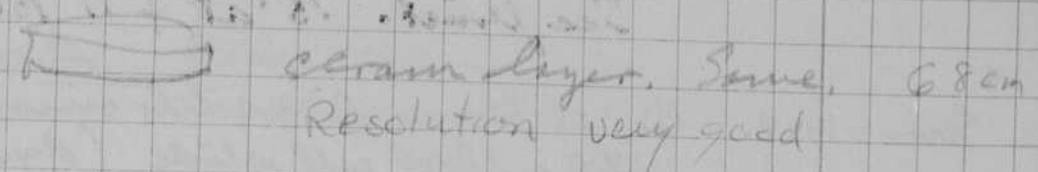 ceram layer. Same. 68 cm
Resolution very good